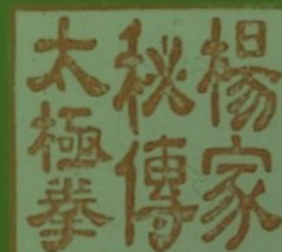 楊家
秘傳
太極拳